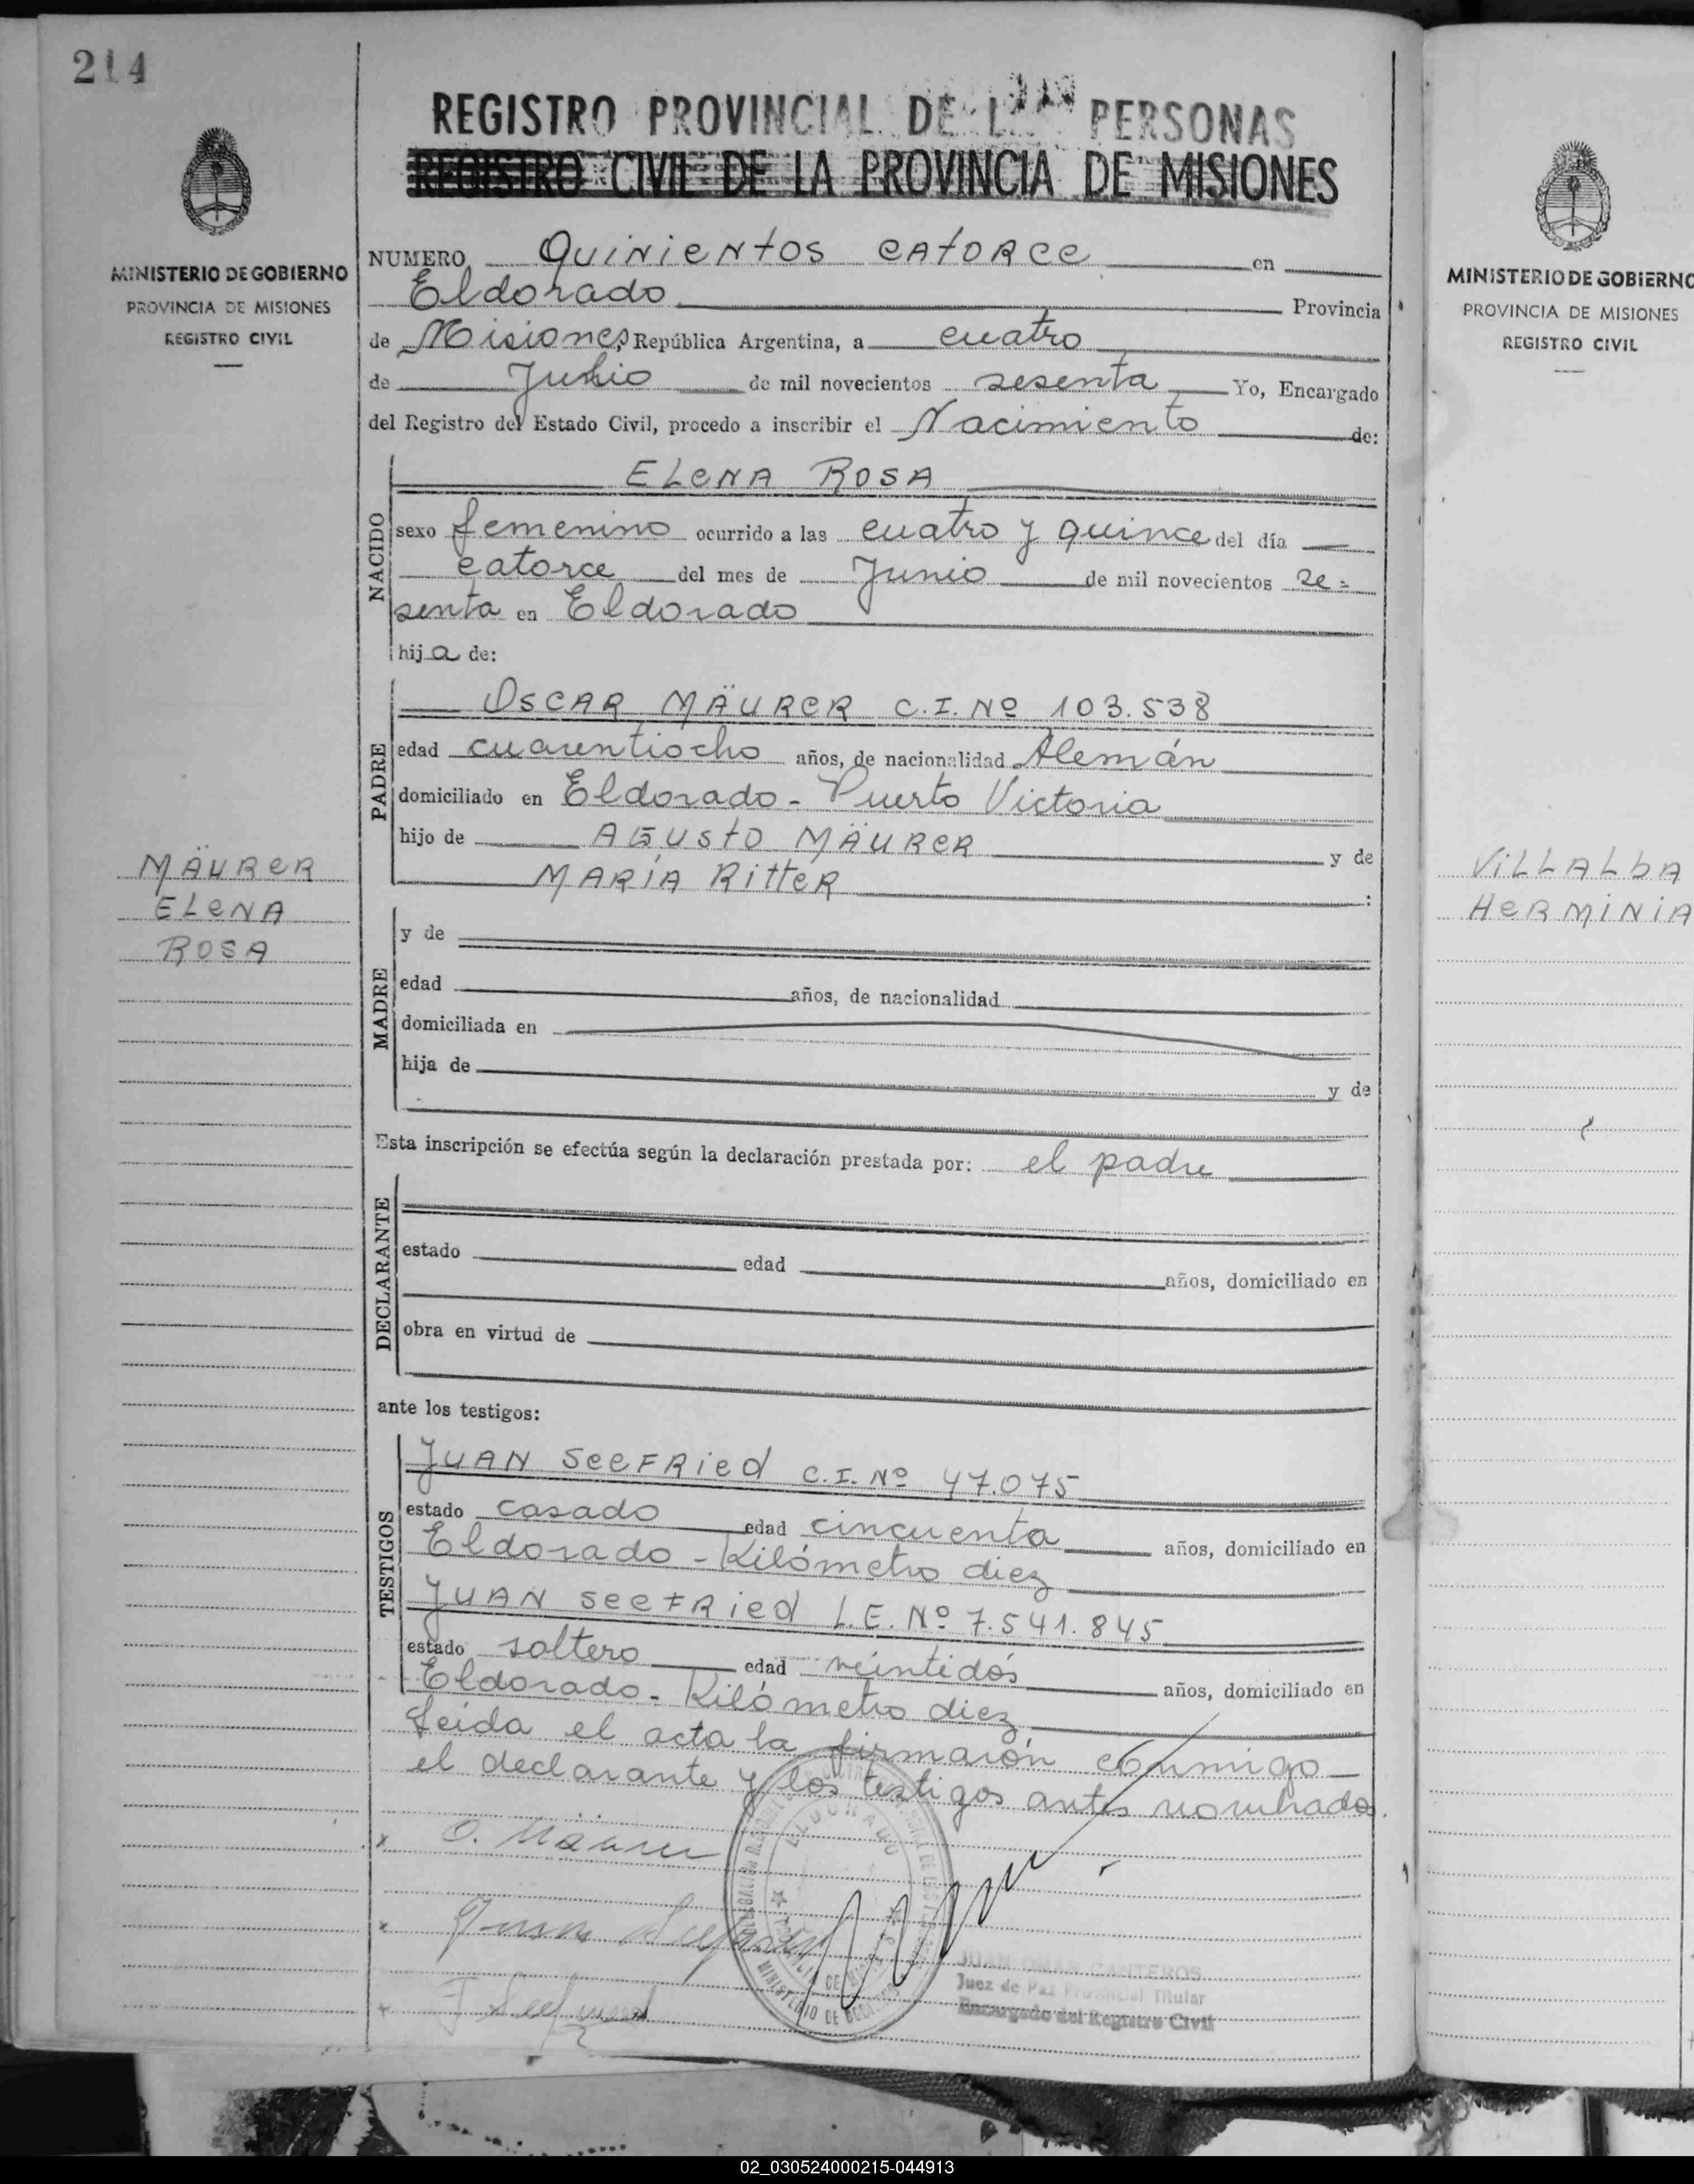 214
REGISTRO PROVINCIAL DE L PERSONAS
REGISTRO CIVIL DE LA PROVINCIA DE MISIONES
MINISTERIO DE GOBIERNO
PROVINCIA DE MISIONES
REGISTRO CIVIL
NUMERO QUINIENTOS CATORCE en
Eldorado Provincia
de Misiones, República Argentina, a cuatro
de de mil novecientos sesenta Yo, Encargado
del Registro del Estado Civil, procedo a inscribir el Nacimiento de:
NACIDO
ELENA ROSA
sexo femenino ocurrido a las cuatro y quince del día
catorce del mes de Junio de mil novecientos se-
senta en Eldorado
hija de:
PADRE
OSCAR MÄURER C.I. Nº 103.538
edad cuarentiocho años, de nacionalidad Alemán
domiciliado en Eldorado - Puerto Victoria
hijo de AGUSTO MÄURER y de
MARÍA RITTER :
MÄURER
ELENA
ROSA
MADRE
y de
edad años, de nacionalidad
domiciliada en
hija de y de
Esta inscripción se efectúa según la declaración prestada por: el padre
DECLARANTE
estado edad años, domiciliado en
obra en virtud de
ante los testigos:
TESTIGOS
JUAN SEEFRIED C.I. Nº 47.075
estado casado edad cincuenta años, domiciliado en
Eldorado - Kilómetro diez
JUAN SEEFRIED L.E. Nº 7.541.845
estado soltero edad veintidós años, domiciliado en
Eldorado - Kilómetro diez
Leída el acta la firmarón conmigo
el declarante y los testigos antes nombrados.
x O. Mäurer
x Juan Seefried
x J Seefried
ELDORADO
MINISTERIO DE GOBIERNO
JUAN OMAR CANTEROS
Juez de Paz Provincial Titular
Encargado del Registro Civil
MINISTERIO DE GOBIERNO
PROVINCIA DE MISIONES
REGISTRO CIVIL
VILLALBA
HERMINIA
02_030524000215-044913